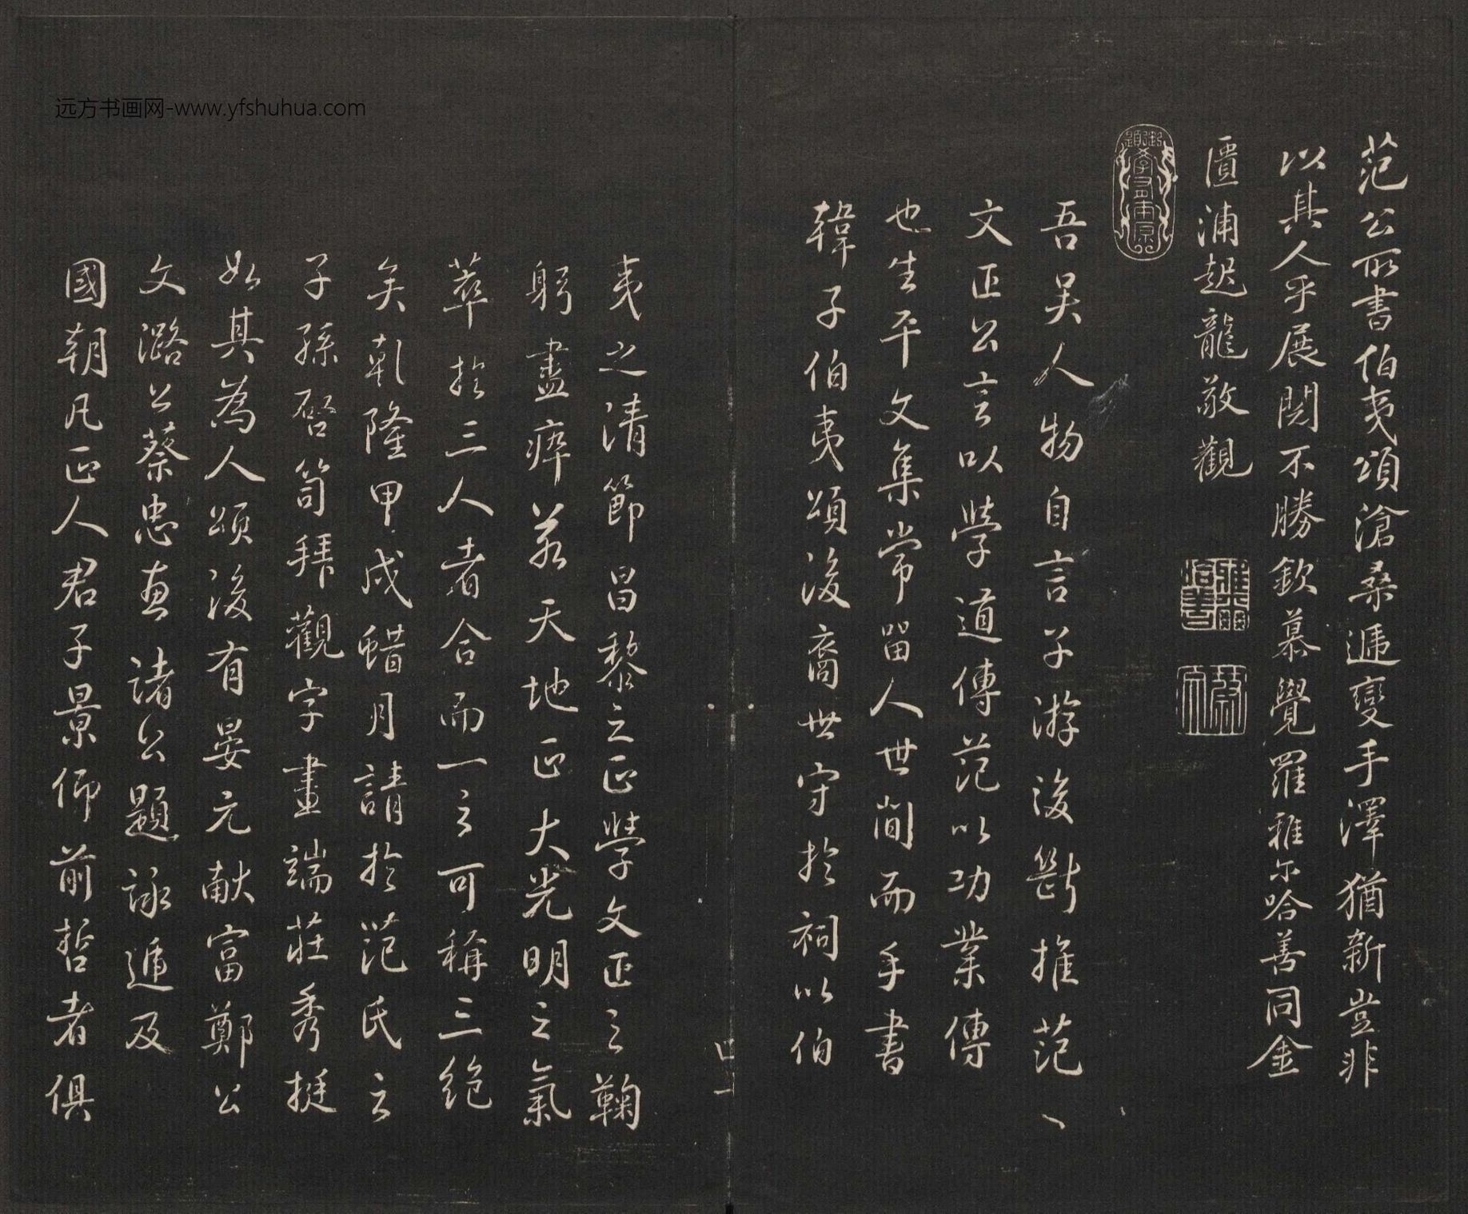 范公所書伯夷頌滄桑遞變手澤猶新豈非
以其人乎展閱不勝欽慕覺羅雅尔哈善同金
匱浦起龍敬觀
吾吴人物自言子游後斷推范丶
文正公言以學道傳范以功業傳
也生平文集常留人世間而手書
韓子伯夷頌後裔世守於祠以伯
夷之清節昌黎之正學文正之鞠
躬盡瘁茗天地正大光明之氣
萃於三人者合而一之可稱三絶
矣乹隆甲戍蜡月請於范氏之
子孫啓笥拜觀字畫端莊秀挺
如其為人頌後有晏元献富鄭公
文潞公蔡忠惠諸公題詠逓及
國朝凡正人君子景仰前哲者俱
远方书画网-www.yfshuhua.com